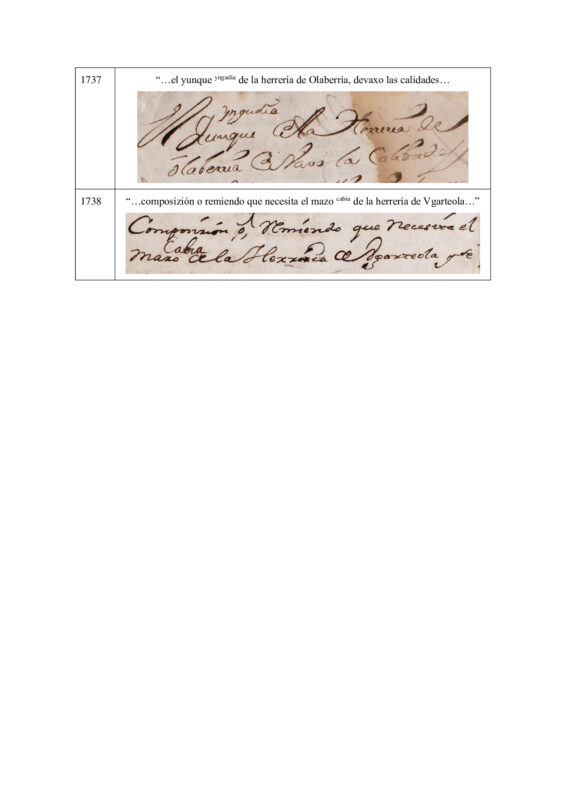 1737
“…el yunque yngudia de la herrería de Olaberría, devaxo las calidades…
yngudia
Yunque de la Herreria de
olaberria devaxo las Calidades
1738
“…composizión o remiendo que necesita el mazo cabia de la herrería de Vgarteola…”
Composizion ô remiendo que necesita el
Cabia
mazo de la Herreria de Vgarteola que